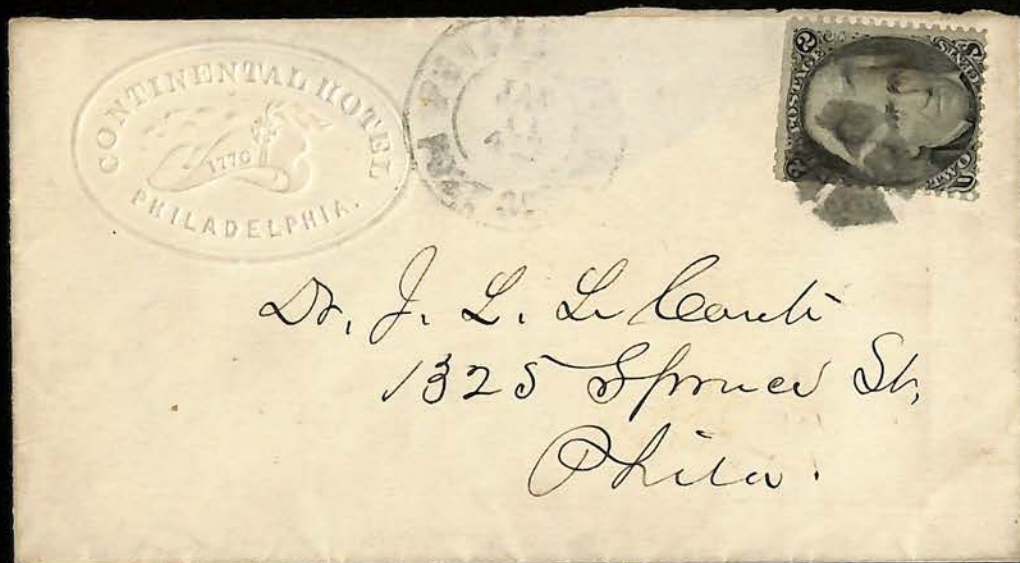 CONTINENTAL HOTEL
1776
PHILADELPHIA.
U.S. POSTAGE
2 2
Dr. J. L. Le Conte
1325 Spruce St,
Phila.